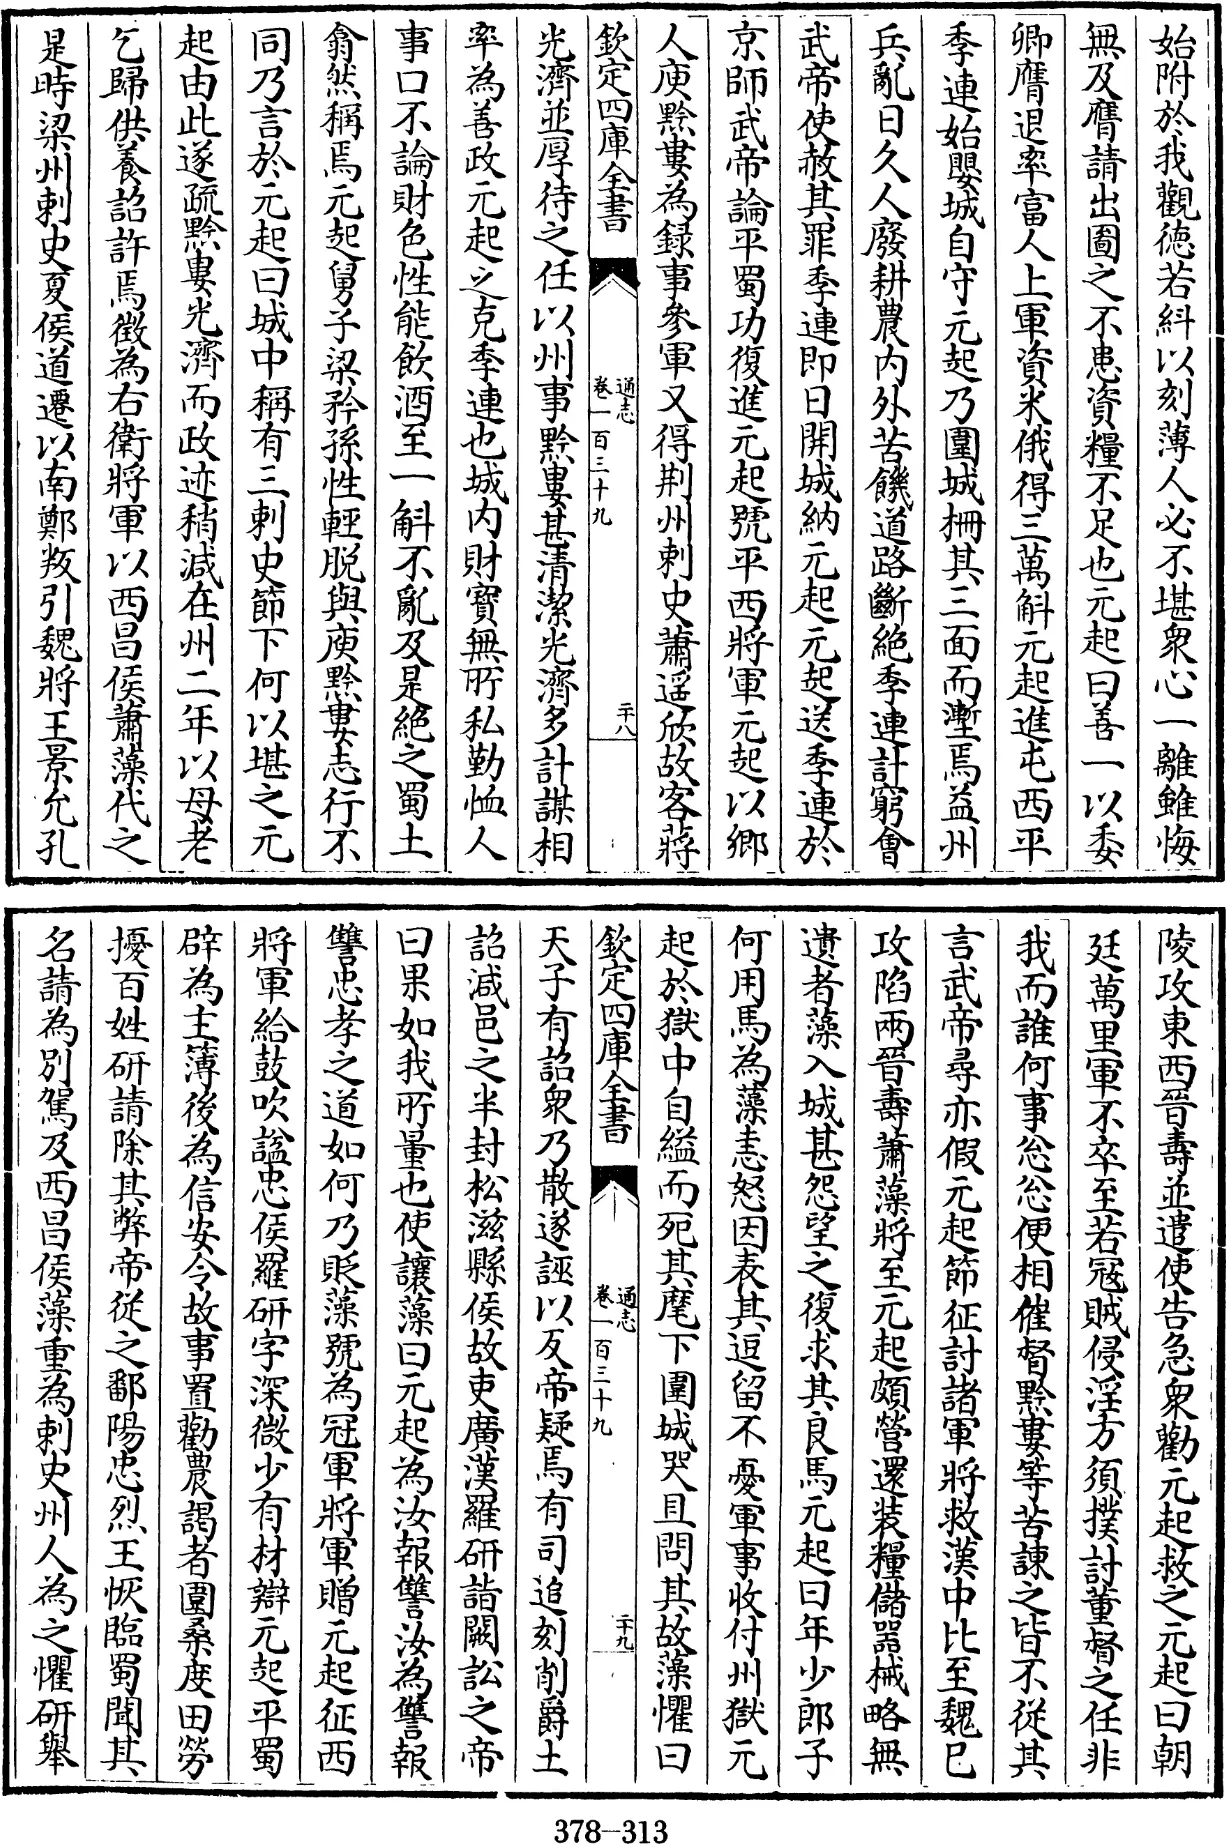 始附於我觀徳若紏以刻薄人必不堪衆心一離雖悔
無及膺請出圖之不患資糧不足也元起曰善一以委
卿膺退率富人上軍資米俄得三萬斛元起進屯西平
季連始嬰城自守元起乃圍城柵其三面而塹焉益州
兵亂日久人廢耕農内外苦饑道路斷絶季連計窮㑹
武帝使赦其罪季連即日開城納元起元起送季連於
京師武帝論平蜀功復進元起號平西將軍元起以鄉
人庾黔婁為録事參軍又得荆州刺史蕭遥欣故客蔣
欽定四庫全書
通志
卷一百三十九
二十八
光濟並厚待之任以州事黔婁甚清潔光濟多計謀相
率為善政元起之克季連也城内財寳無所私勤恤人
事口不論財色性能飲酒至一斛不亂及是絶之蜀土
翕然稱焉元起舅子梁矜孫性輕脱與庾黔婁志行不
同乃言於元起曰城中稱有三刺史節下何以堪之元
起由此遂疏黔婁光濟而政迹稍減在州二年以母老
乞歸供養詔許焉徴為右衛將軍以西昌侯蕭藻代之
是時梁州刺史夏侯道遷以南鄭叛引魏將王景允孔
陵攻東西晉壽並遣使告急衆勸元起救之元起曰朝
廷萬里軍不卒至若寇賊侵淫方須撲討董督之任非
我而誰何事怱怱便相催督黔婁等苦諫之皆不從其
言武帝尋亦假元起節征討諸軍將救漢中比至魏已
攻陷兩晉壽蕭藻將至元起頗營還裝糧儲器械略無
遺者藻入城甚怨望之復求其良馬元起曰年少郎子
何用馬為藻恚怒因表其逗留不憂軍事收付州獄元
起於獄中自縊而死其麾下圍城哭且問其故藻懼曰
欽定四庫全書
通志
卷一百三十九
二十九
天子有詔衆乃散遂誣以反帝疑焉有司追劾削爵土
詔減邑之半封松滋縣侯故吏廣漢羅研詣闕訟之帝
曰果如我所量也使讓藻曰元起為汝報讐汝為讐報
讐忠孝之道如何乃貶藻號為冠軍將軍贈元起征西
將軍給鼓吹諡忠侯羅研字深微少有材辯元起平蜀
辟為主簿後為信安令故事置勸農謁者圍桑度田勞
擾百姓研請除其弊帝従之鄱陽忠烈王恢臨蜀聞其
名請為别駕及西昌侯藻重為刺史州人為之懼研舉
378-313